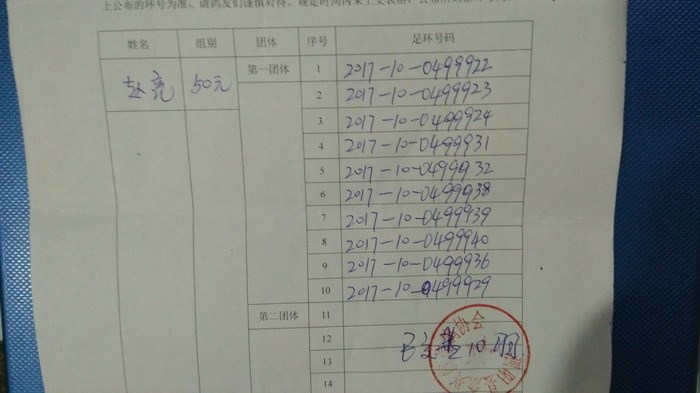 上公布的环号为准，请鸽友们谨慎对待。规定时间内未上交表格，公布
姓名 组别 团体 序号 足环号码
赵亮 50元 第一团体 1 2017-10-0499922
2 2017-10-0499923
3 2017-10-0499924
4 2017-10-0499931
5 2017-10-0499932
6 2017-10-0499938
7 2017-10-0499939
8 2017-10-0499940
9 2017-10-0499936
10 2017-10-0499929
第二团体 11
12
13
14
协会